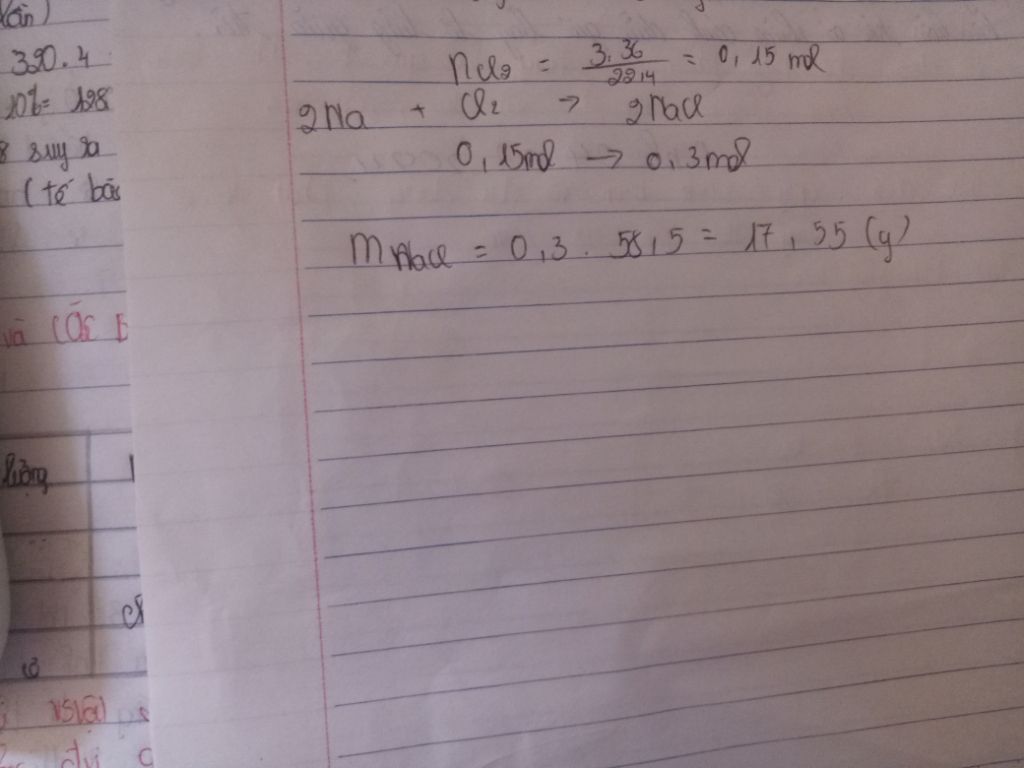 kần)
390.4
10% = 198
8 suy ra
(tế bào
và (Os
lượng
nCl2 = 3,36 / 22,4 = 0,15 mol
2Na + Cl2 → 2NaCl
0,15mol → 0,3mol
mNaCl = 0,3 . 58,5 = 17,55 (g)